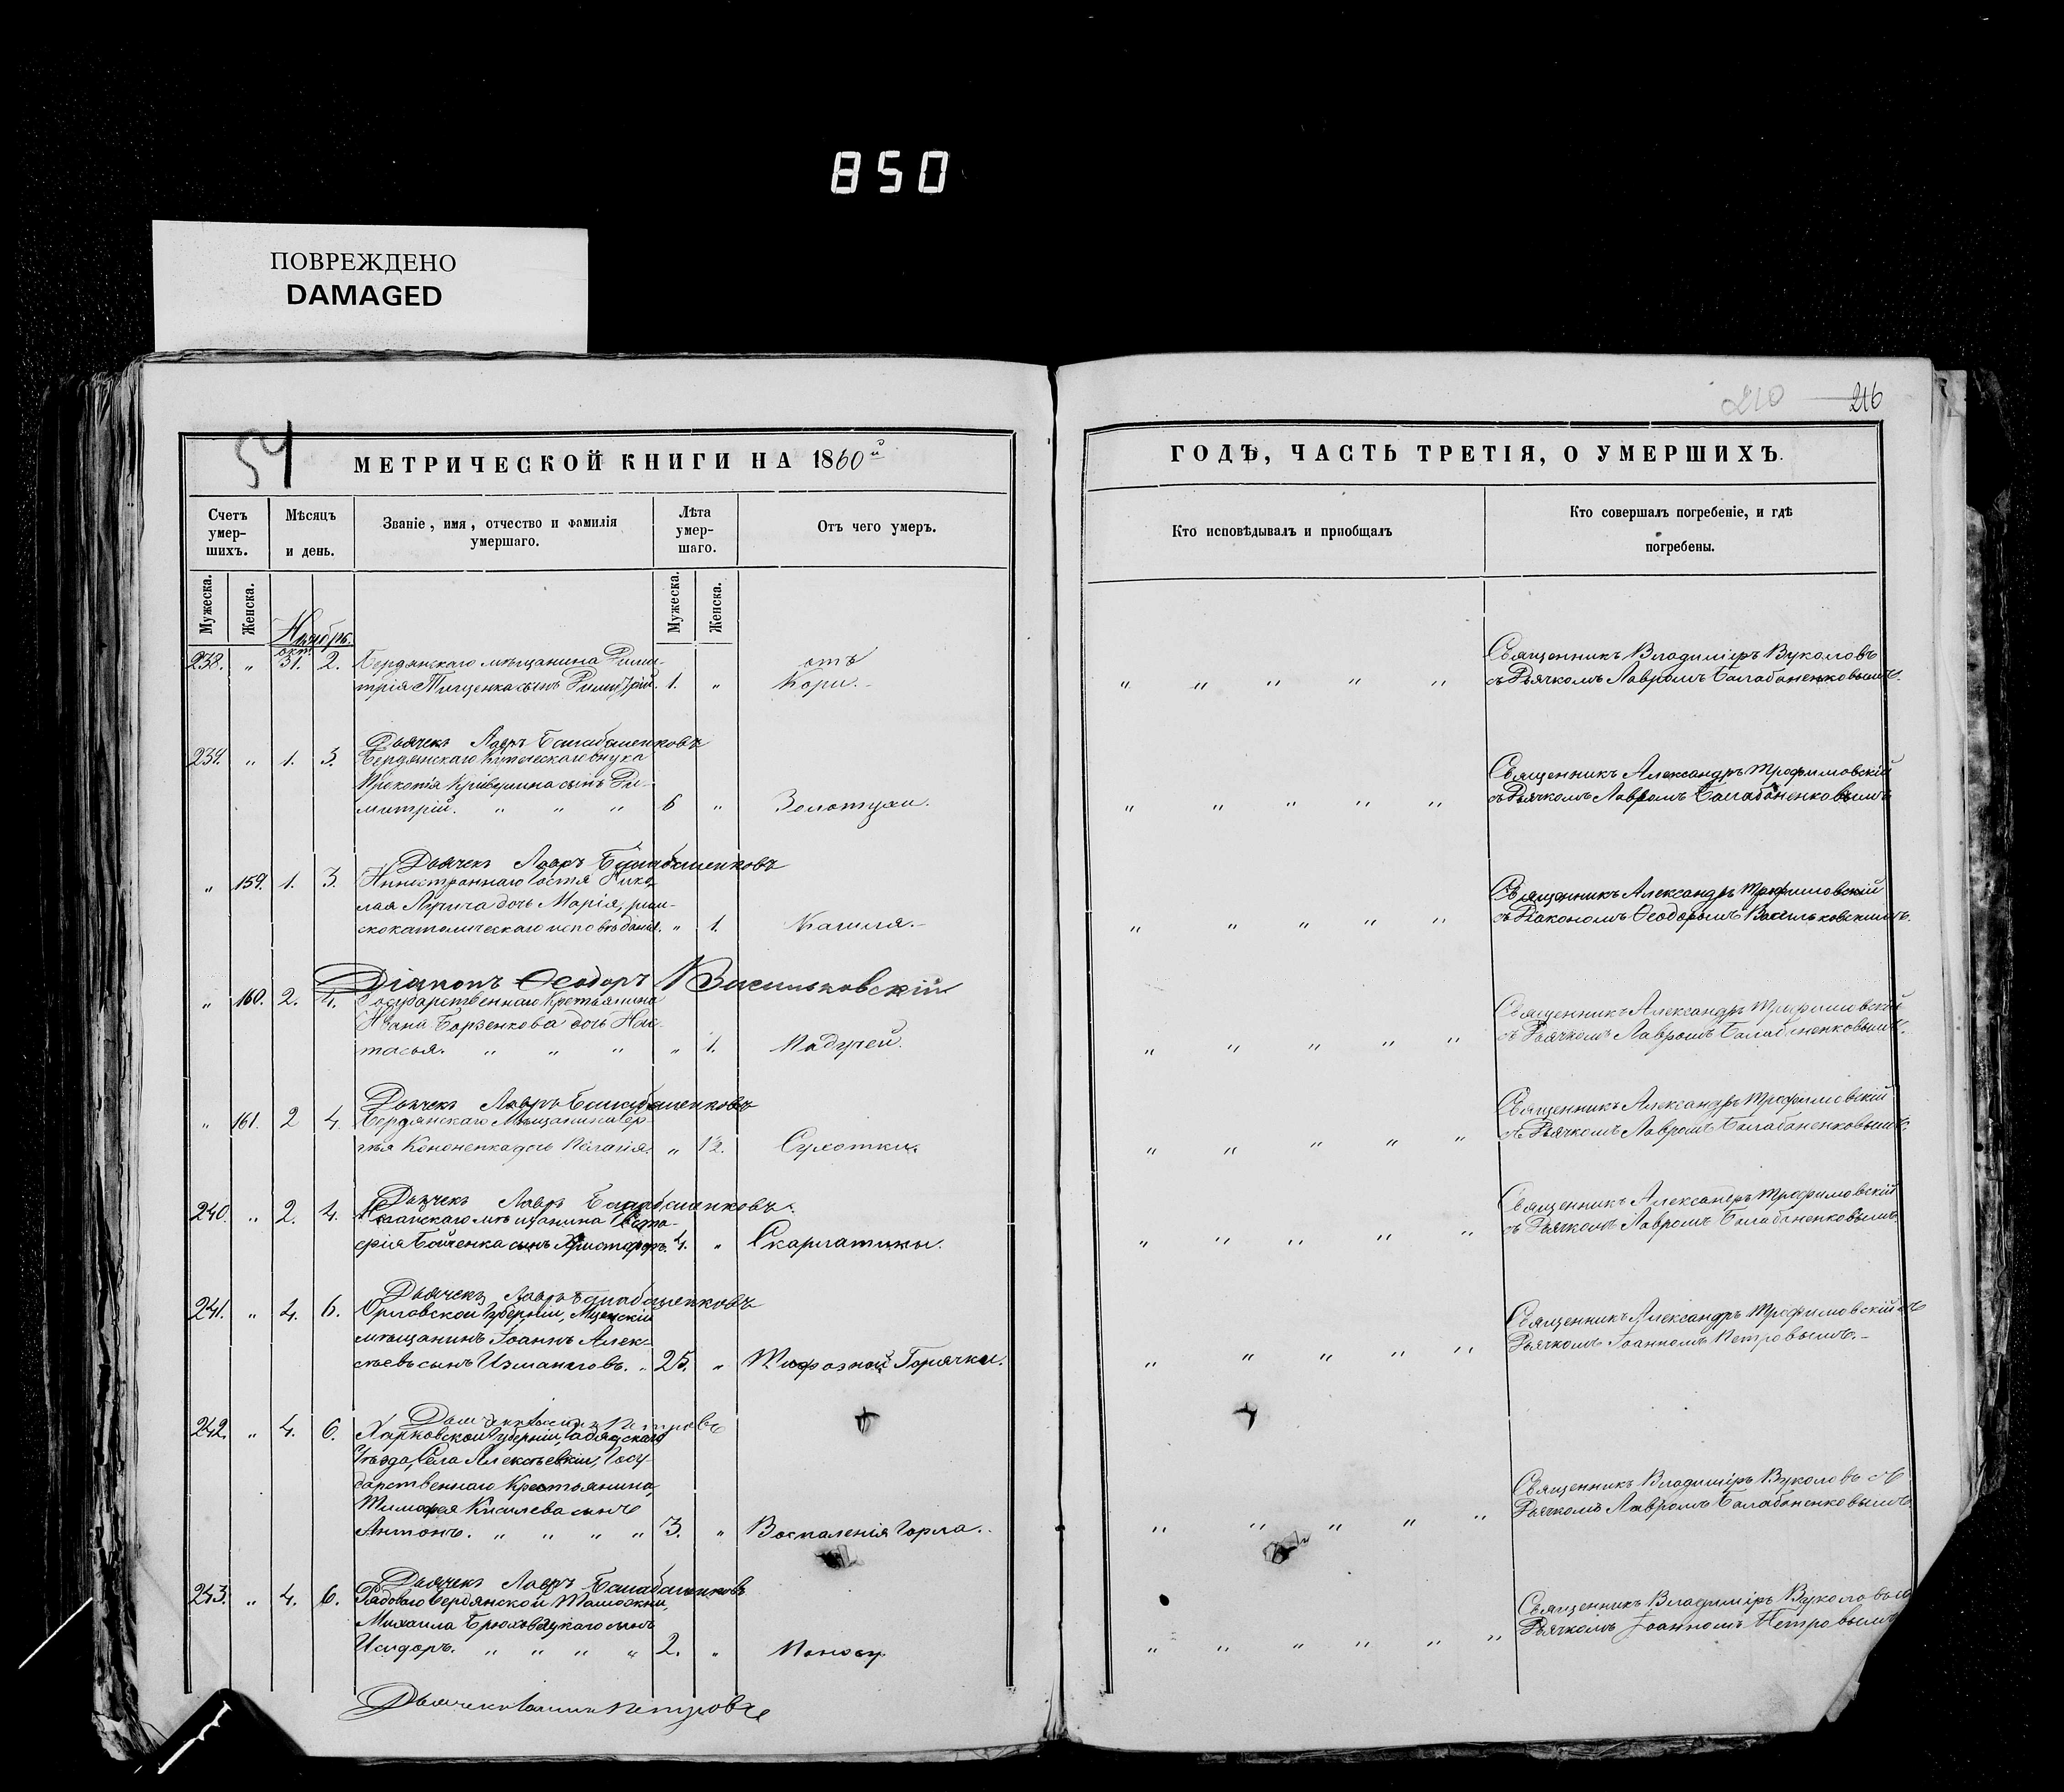 850
ПОВРЕЖДЕНО
DAMAGED
210 216
54
МЕТРИЧЕСКОЙ КНИГИ НА 1860й
ГОДЪ, ЧАСТЬ ТРЕТІЯ, О УМЕРШИХЪ.
Счетъ умер-шихъ.
Мѣсяцъ и день.
Званіе, имя, отчество и фамилія умершаго.
Лѣта умер-шаго.
Отъ чего умеръ.
Кто исповѣдывалъ и пріобщалъ
Кто совершалъ погребеніе, и гдѣ погребены.
Мужеска. Женска. Мужеска. Женска.
Ноябрь.
окт.
238. " 31. 2. Бердянскаго мѣщанина Дими- отъ Священникъ Владиміръ Вуколовъ
трія Тищенка сынъ Димитрій. 1. " Кори. " " " " " съ Дьячкомъ Лавромъ Балабаненковымъ.
Дьячекъ Лавръ Балабаненковъ
239. " 1. 3. Бердянскаго купеческаго внука Священникъ Александръ Трофимовскій
Прокопія сынъ Ди- съ Дьячкомъ Лавромъ Балабаненковымъ
митрій. " " " 6 " Золотухи. " " " " "
Дьячекъ Лавръ Балабаненковъ
" 159. 1. 3. Иностраннаго гостя Нико- Священникъ Александръ Трофимовскій
лая дочь Марія, рим- съ Діакономъ Ѳеодоромъ Васильковскимъ.
скокатолическаго исповѣданія. " 1. Кашля. " " " " "
Діаконъ Ѳеодоръ Васильковскій
" 160. 2. 4. Государственнаго Крестьянина Священникъ Александръ Трофимовскій
Ивана Борзенкова дочь Нас- съ Дьячкомъ Лавромъ Балабаненковымъ.
тасья. " " " " 1. Падучей. " " " " "
Дьячекъ Лавръ Балабаненковъ
" 161. 2 4. Бердянскаго Мѣщанина Сер- Священникъ Александръ Трофимовскій
гѣя Кононенка дочь Пелагія. " 12. Сухотки. " " " " " съ Дьячкомъ Лавромъ Балабаненковымъ.
Дьячекъ Лавръ Балабаненковъ.
240. " 2. 4. мѣщанина Священникъ Александръ Трофимовскій
Бойченка сынъ Христофоръ. 4. " Скарлатины. " " " " " съ Дьячкомъ Лавромъ Балабаненковымъ.
Дьячекъ Лавръ Балабаненковъ
241. " 4. 6. Орловской губерніи, Мценскій Священникъ Александръ Трофимовскій съ
мѣщанинъ Іоаннъ Алек- Дьячкомъ Іоанномъ Петровымъ.
сѣевъ сынъ Измайловъ. " 25. " Тифозной Горячки. " " " " "
Дьячекъ Іоаннъ Петровъ
242. " 4. 6. Харковской Губерніи,
Уѣзда, Села Алексѣевкіи, Госу-
дарственнаго Крестьянина, Священникъ Владиміръ Вуколовъ съ
Тимофея Киселева сынъ Дьячкомъ Лавромъ Балабаненковымъ.
Антонъ. " " " " 3. " Воспаленія Горла. " " " " "
Дьячекъ Лавръ Балабаненковъ
243. " 4. 6. Рядоваго Бердянской Таможни, Священникъ Владиміръ Вуколовъ
Михаила сынъ Дьячкомъ Іоанномъ Петровымъ
Исидоръ. " " " " 2. " Поносу " " " " " "
Дьячекъ Іоаннъ Петровъ